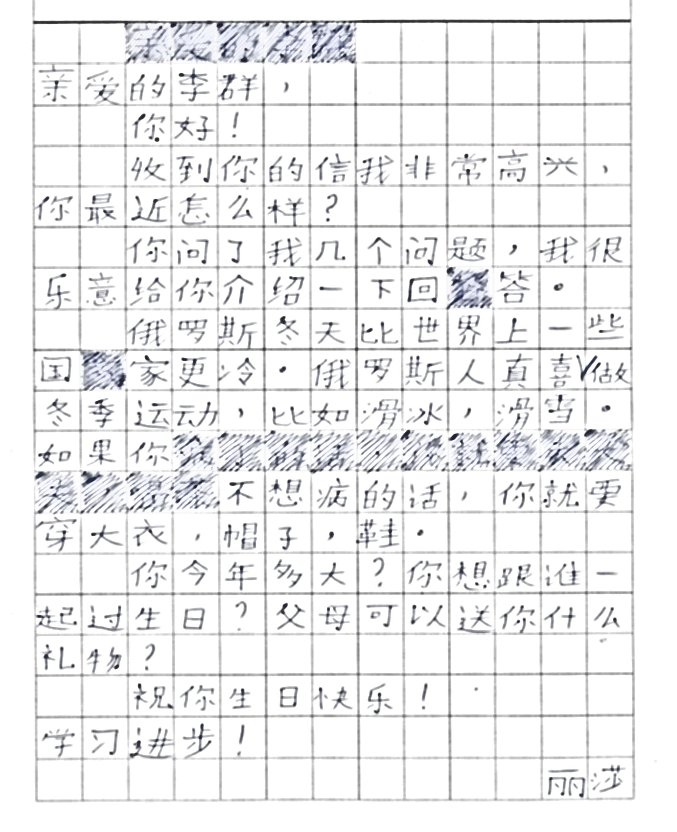 亲爱的李群，
你好！
收到你的信我非常高兴，
你最近怎么样？
你问了我几个问题，我很
乐意给你介绍一下回答。
俄罗斯冬天比世界上一些
国家更冷。俄罗斯人真喜√做
冬季运动，比如滑冰，滑雪。
如果你
不想病的话，你就要
穿大衣，帽子，鞋。
你今年多大？你想跟谁一
起过生日？父母可以送你什么
礼物？
祝你生日快乐！
学习进步！
丽莎